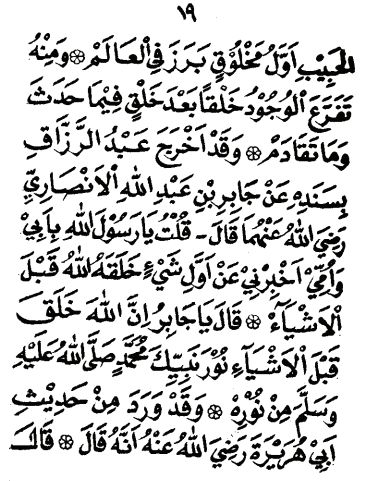 ١٩
الْحَبِيْبِ اَوَّلُ مَخْلُوْقٍ بَرَزَ فِي الْعَالَمْ ۞ وَمِنْهُ
تَفَرَّعَ الْوُجُوْدُ خَلْقًا بَعْدَ خَلْقٍ فِيْمَا حَدَثَ
وَمَا تَقَادَمْ ۞ وَقَدْ اَخْرَجَ عَبْدُ الرَّزَّاقِ
بِسَنَدِهِ عَنْ جَابِرِ بْنِ عَبْدِ اللهِ الْاَنْصَارِيِّ
رَضِيَ اللهُ عَنْهُمَا قَالَ - قُلْتُ يَارَسُوْلَ اللهِ بِاَبِيْ
وَاُمِّيْ اَخْبِرْنِيْ عَنْ اَوَّلِ شَيْءٍ خَلَقَهُ اللهُ قَبْلَ
الْاَشْيَآءْ ۞ قَالَ يَاجَابِرُ اِنَّ اللهَ خَلَقَ
قَبْلَ الْاَشْيَآءِ نُوْرَ نَبِيِّكَ مُحَمَّدٍ صَلَّى اللهُ عَلَيْهِ
وَسَلَّمَ مِنْ نُوْرِهْ ۞ وَقَدْ وَرَدَ مِنْ حَدِيْثِ
اَبِيْ هُرَيْرَةَ رَضِيَ اللهُ عَنْهُ اَنَّهُ قَالَ ۞ قَالَ